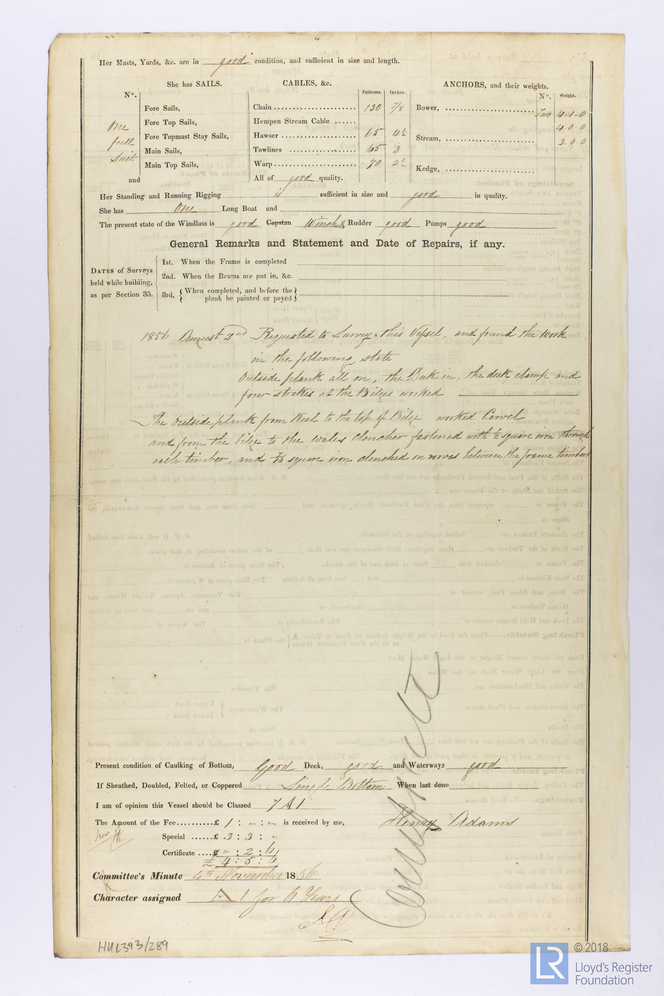 Her Masts, Yards, &c. are in good condition, and sufficient in size and length.
She has SAILS. CABLES, &c. ANCHORS, and their weights.
N°. Fathoms. Inches. N°. Weight.
Fore Sails, Chain 130 7/8 Bower, Two 4-1-0
one Fore Top Sails, Hempen Stream Cable 4.0.0
full Fore Topmast Stay Sails, Hawser 65 4½ Stream, 3.0.0
suit Main Sails, Towlines 65 3
Main Top Sails, Warp 70 Kedge,
and All of good quality.
Her Standing and Running Rigging is sufficient in size and good in quality.
She has One Long Boat and
The present state of the Windlass is good Capstan Winch & Rudder good Pumps good
General Remarks and Statement and Date of Repairs, if any.
DATES of Surveys held while building, as per Section 35.
1st. When the Frame is completed
2nd. When the Beams are put in, &c.
3rd, { When completed, and before the plank be painted or payed }
1856 August 2nd Requested to Survey this Vessel, and found the work
in the following state
Outside plank all on, the in, the deck clamp and
four strakes at the Bilges worked
The Outside plank from Keel to the top of Bilge worked Carvel
and from the bilge to the wales Clencher fastened with ½ square iron through
each timber, and square iron clenched on between the frame timbers
Present condition of Caulking of Bottom, Good Deck, good and Waterways good
If Sheathed, Doubled, Felted, or Coppered Single Bottom When last done
I am of opinion this Vessel should be Classed 7 A 1
The Amount of the Fee £ 1 : - : - is received by me, Henry Adams
Special £ 3 : 3 : -
Certificate - : 2 : 6
£ 4 : 5 : 6
Committee's Minute 4th November 1856
Character assigned A 1 for 6 Years
HUL393/289
© 2018
LR Lloyd's Register
Foundation